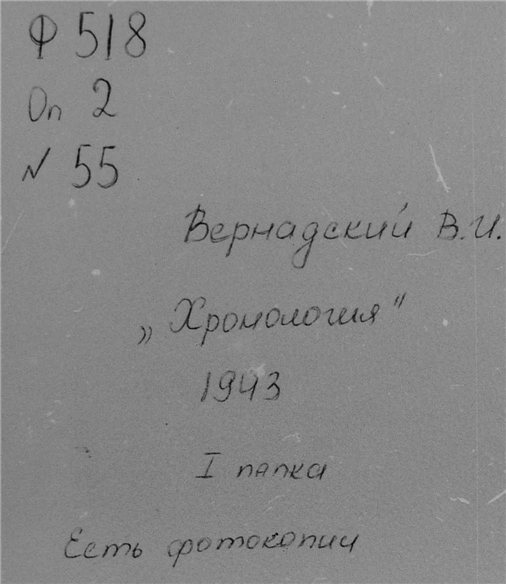 Ф 518
Оп 2
N 55
Вернадский В.И.
„Хронология"
1943
I папка
Есть фотокопии